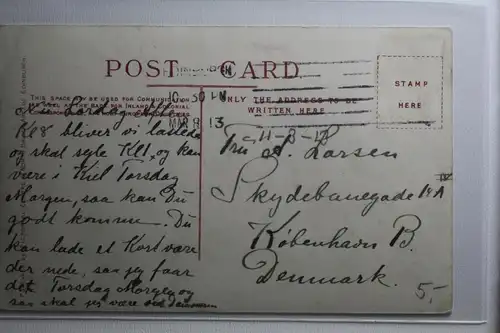 POST CARD
10. 30 PM
MAR 8 13
THIS SPACE MAY BE USED FOR COMMUNICATION
ONLY THE ADDRESS TO BE
WRITTEN HERE
STAMP
HERE
Lördag
Kl 8 bliver vi
og skal sejle Kl 1, og kan
være i Kiel Torsdag
Morgen, saa kan Du
godt komme. Du
kan lade et Kort være
der nede, saa jeg faar
det Torsdag Morgen og
saa skal jeg være ved
Fru A. Larsen
Skydebanegade 14 A
IV
København B.
Denmark.
5,-